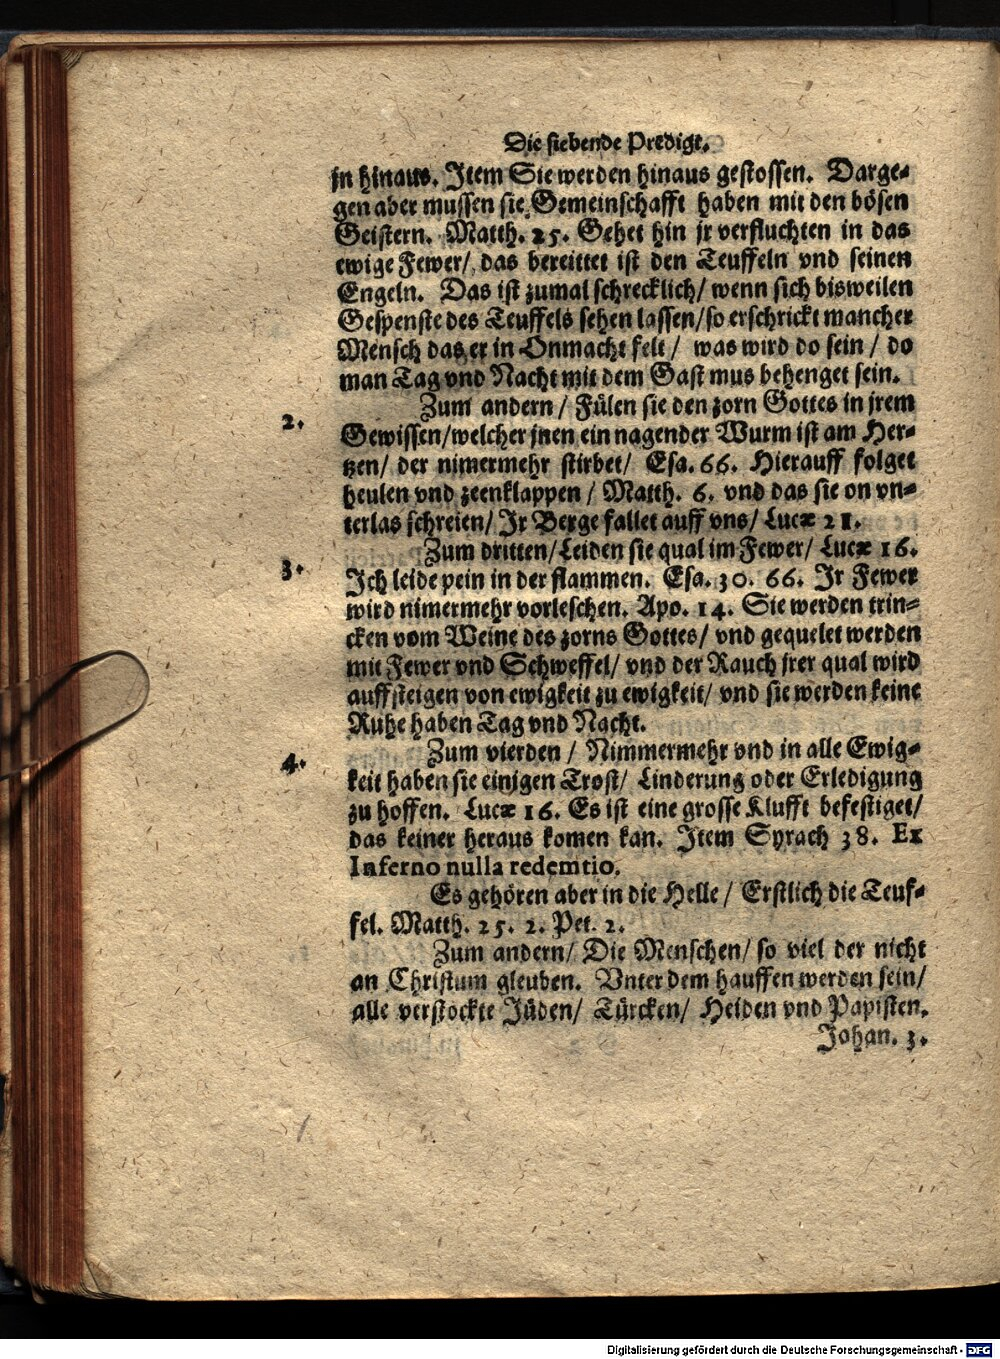 Die siebende Predigt.
jn hinaus. Item Sie werden hinaus gestossen. Darge-
gen aber mussen sie Gemeinschafft haben mit den bösen
Geistern. Matth. 25. Gehet hin jr verfluchten in das
ewige Fewer/ das bereittet ist den Teuffeln vnd seinen
Engeln. Das ist zumal schrecklich/ wenn sich bisweilen
Gespenste des Teuffels sehen lassen/ so erschrickt mancher
Mensch das er in Onmacht felt/ was wird do sein/ do
man Tag vnd Nacht mit dem Gast mus behenget sein.
2. Zum andern/ Fülen sie den zorn Gottes in jrem
Gewissen/ welcher jnen ein nagender Wurm ist am Her-
tzen/ der nimermehr stirbet/ Esa. 66. Hierauff folget
heulen vnd zeenklappen/ Matth. 6. vnd das sie on vn-
terlas schreien/ Jr Berge fallet auff vns/ Lucæ 21.
3. Zum dritten/ Leiden sie qual im Fewer/ Lucæ 16.
Ich leide pein in der flammen. Esa. 30. 66. Jr Fewer
wird nimermehr vorleschen. Apo. 14. Sie werden trin-
cken vom Weine des zorns Gottes/ vnd gequelet werden
mit Fewer vnd Schweffel/ vnd der Rauch jrer qual wird
auffsteigen von ewigkeit zu ewigkeit/ vnd sie werden keine
Ruhe haben Tag vnd Nacht.
4. Zum vierden/ Nimmermehr vnd in alle Ewig-
keit haben sie einigen Trost/ Linderung oder Erledigung
zu hoffen. Lucæ 16. Es ist eine grosse Klufft befestiget/
das keiner heraus komen kan. Item Syrach 38. Ex
Inferno nulla redemtio.
Es gehören aber in die Helle/ Erstlich die Teuf-
fel. Matth. 25. 2. Pet. 2.
Zum andern/ Die Menschen/ so viel der nicht
an Christum gleuben. Vnter dem hauffen werden sein/
alle verstockte Jüden/ Türcken/ Heiden vnd Papisten.
Johan. 3.
Digitalisierung gefördert durch die Deutsche Forschungsgemeinschaft - DFG